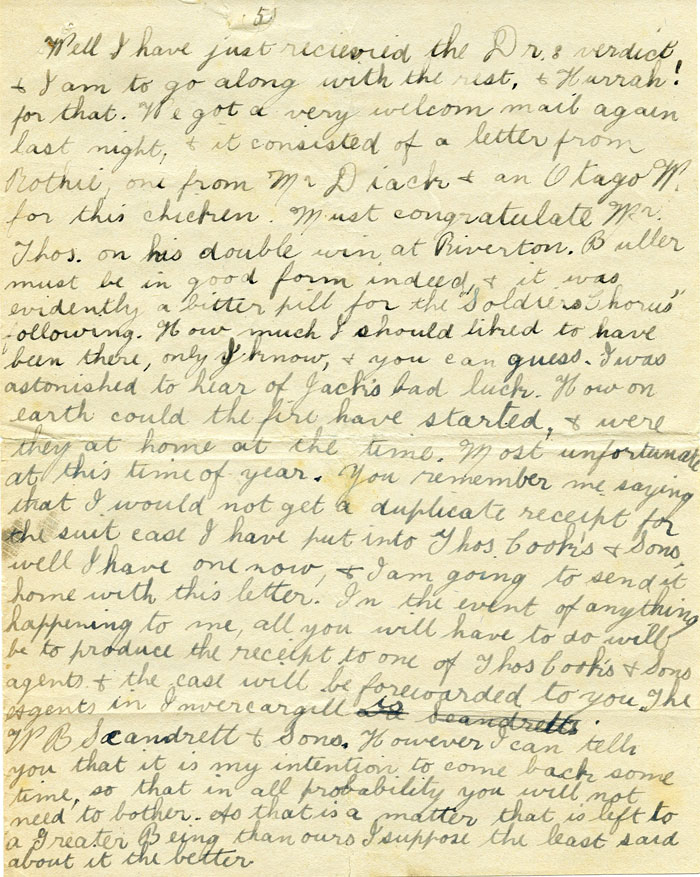 5)
Well I have just recievied the Dr.s verdict
& I am to go along with the rest, & Hurrah!
for that. We got a very welcom mail again
last night, & it consisted of a letter from
Rothie, one from Mr Diack & an Otago W.
for this chicken. Must congratulate Mr.
Thos. on his double win at Riverton. Buller
must be in good form indeed, & it was
evidently a bitter pill for the "Soldiers Chorus"
following. How much I should liked to have
been there, only I know, & you can guess. I was
astonished to hear of Jack's bad luck. How on
earth could the fire have started, & were
they at home at the time. Most unfortunate
at this time of year. You remember me saying
that I would not get a duplicate receipt for
the suit case I have put into Thos. Cook's & Sons,
well I have one now, & I am going to send it
home with this letter. In the event of anything
happening to me, all you will have to do will
be to produce the receipt to one of Thos Cook's & Sons
agents & the case will be forewarded to you. The
agents in Invercargill is Scandretts.
W B Scandrett & Sons. However I can tell
you that it is my intention to come back some
time, so that in all probability you will not
need to bother. As that is a matter that is left to
a Greater Being than ours I suppose the least said
about it the better